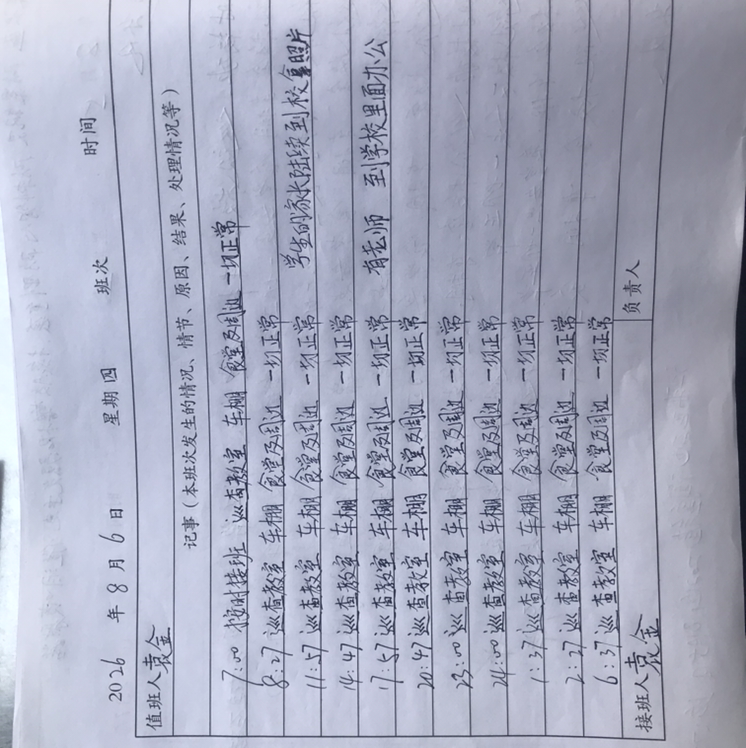 2026 年 8 月 6 日 星期四 班次 时间
值班人 袁金
记事（本班次发生的情况、情节、原因、结果、处理情况等）
7:00 按时接班 巡查教室 车棚 食堂及周边 一切正常
8:27 巡查教室 车棚 食堂及周边 一切正常 学生的家长陆续到校拿照片
11:57 巡查教室 车棚 食堂及周边 一切正常
14:47 巡查教室 车棚 食堂及周边 一切正常
17:57 巡查教室 车棚 食堂及周边 一切正常 有老师 到学校里面办公
20:47 巡查教室 车棚 食堂及周边 一切正常
23:00 巡查教室 车棚 食堂及周边 一切正常
24:00 巡查教室 车棚 食堂及周边 一切正常
1:37 巡查教室 车棚 食堂及周边 一切正常
2:27 巡查教室 车棚 食堂及周边 一切正常
6:37 巡查教室 车棚 食堂及周边 一切正常
接班人 袁金 负责人